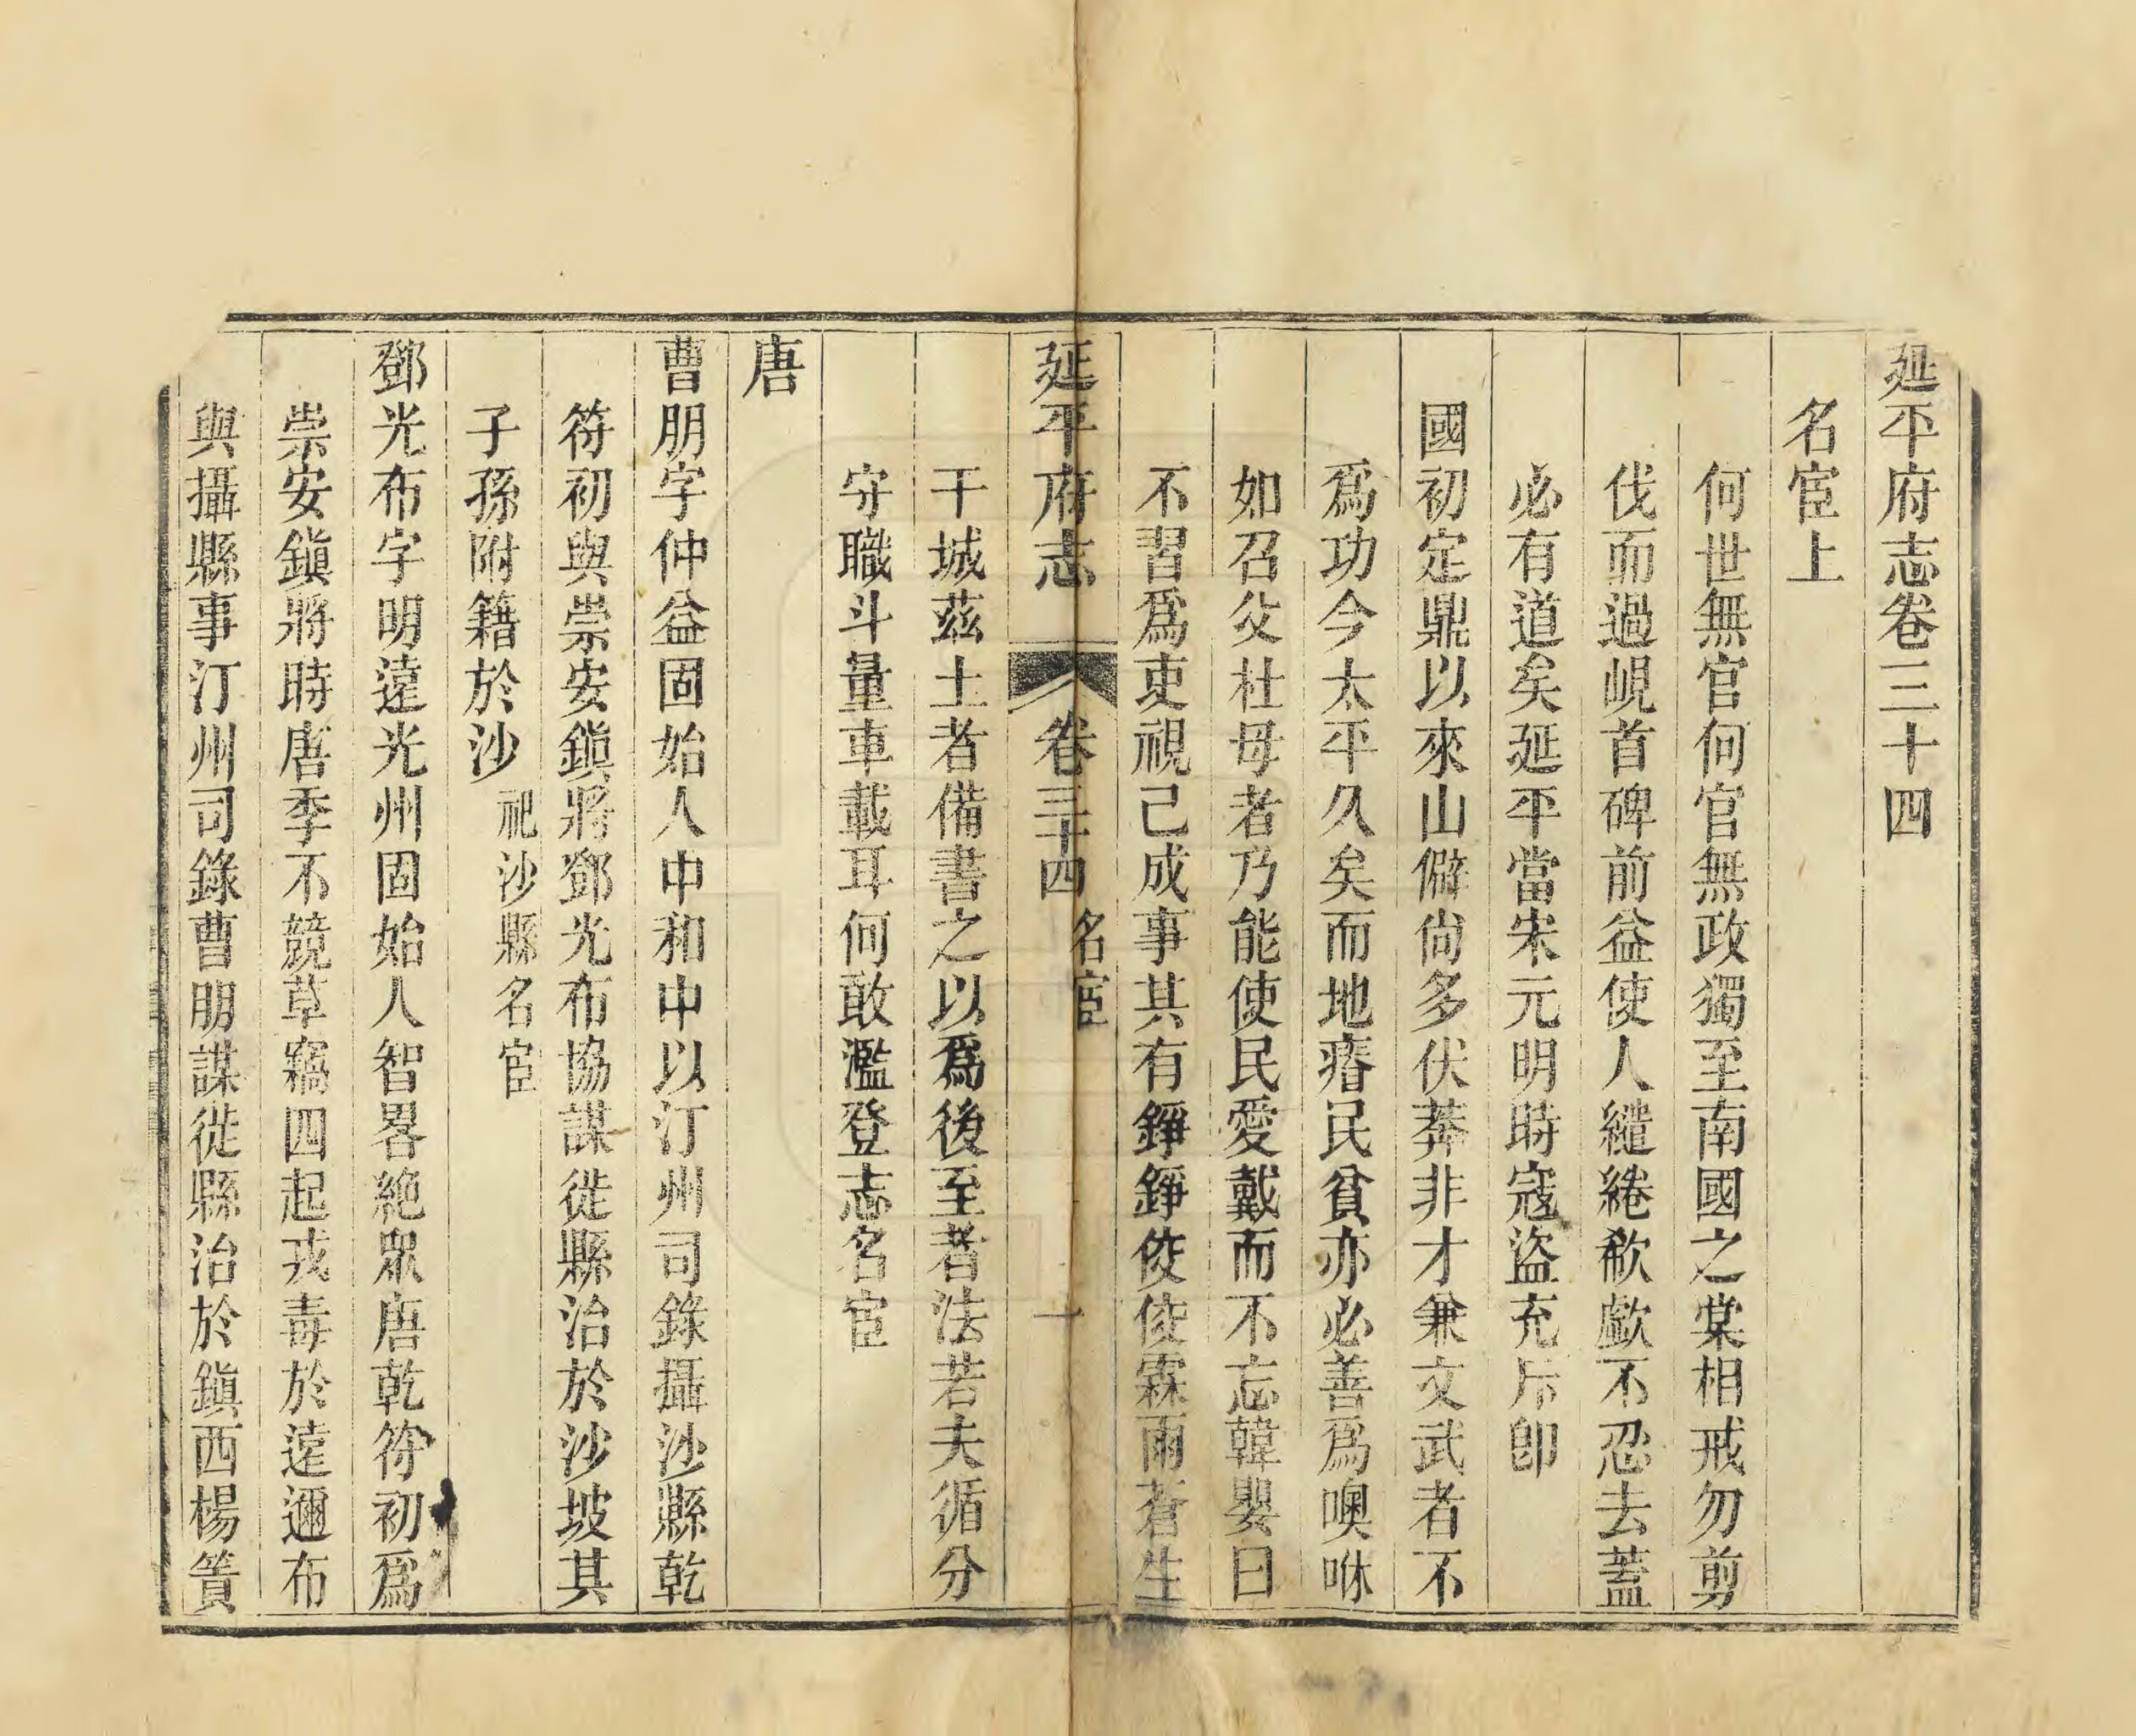 延平府志卷三十四
名宦上
何世無官何官無政獨至南國之棠相戒勿剪
伐而過峴首碑前益使人繾綣欷歔不忍去蓋
必有道矣延平當宋元明時寇盜充斥卽
國初定鼎以來山僻尙多伏莽非才兼文武者不
爲功今太平久矣而地瘠民貧亦必善爲噢咻
如召父杜母者乃能使民愛戴而不忘韓嬰曰
不習爲吏視己成事其有錚錚佼佼霖雨蒼生
延平府志 卷三十四 名宦 一
干城茲土者備書之以爲後至者法若夫循分
守職斗量車載耳何敢濫登志名宦
唐
曹朋字仲益固始人中和中以汀州司錄攝沙縣乾
符初與崇安鎭將鄧光布協謀徙縣治於沙坡其
子孫附籍於沙 祀沙縣名宦
鄧光布字明遠光州固始人智畧絶眾唐乾符初爲
崇安鎭將時唐季不競草竊四起戎毒於遠邇布
與攝縣事汀州司錄曹朋謀徙縣治於鎭西楊簣